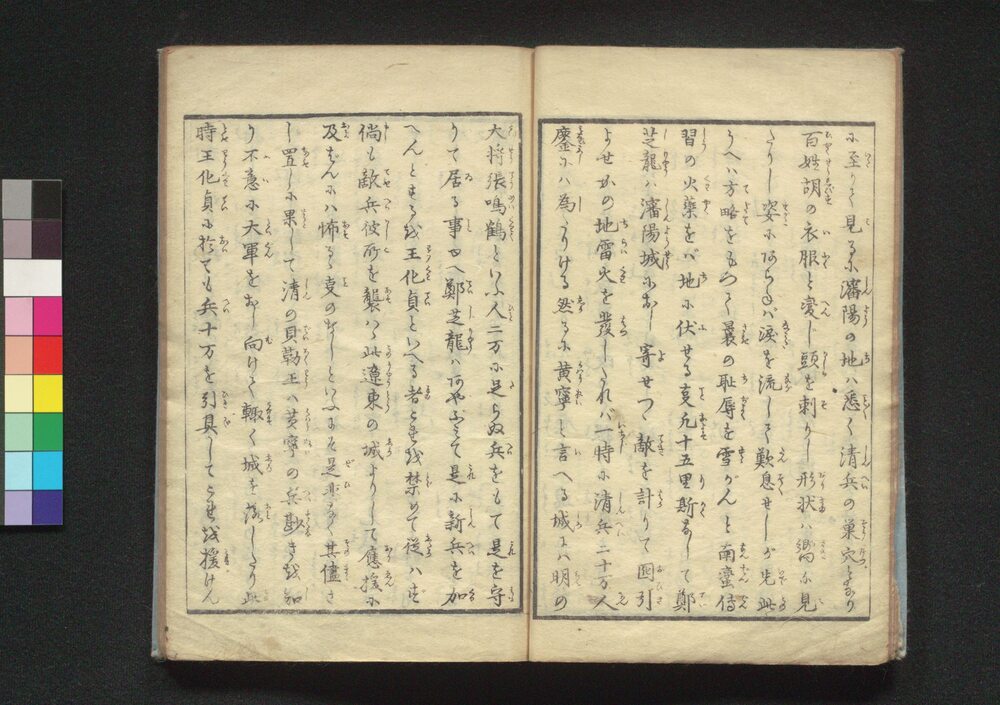 に至りて見るに瀋陽の地ハ悉く清兵の巣穴となり
百姓胡の衣服と変じ頭を剃りし形状ハ嚮に見
たりし姿にあらねバ涙を流して歎息せしが先此
うへハ方略をもつて曩の恥辱を雪がんと南蛮傳
習の火薬をバ地に伏せる事凡十五里斯なして鄭
芝龍ハ瀋陽城におし寄せつゝ敵を計りて图引
よせかの地雷火を發したれバ一時に清兵二十万人
鏖にハ為たりける然るに黄寧と言へる城にハ明の
大将張鳴鶴といふ人二万に足らぬ兵をもて是を守
りて居る事ゆへ鄭芝龍ハあやぶみて是に新兵を加
へんとするを王化貞といへる者とゞめ禁めて従ハず
倘も敵兵彼所を襲ハゞ此遼東の城よりして應援に
及ばんにハ怖るゝ事のなしといふにぞ是非なく其儘さ
し置しに果して清の貝勒王ハ黄寧の兵尠きを知
り不意に大軍をおし向けて輙く城を落したり此
時王化貞に於ても兵十万を引具してこれを援けん